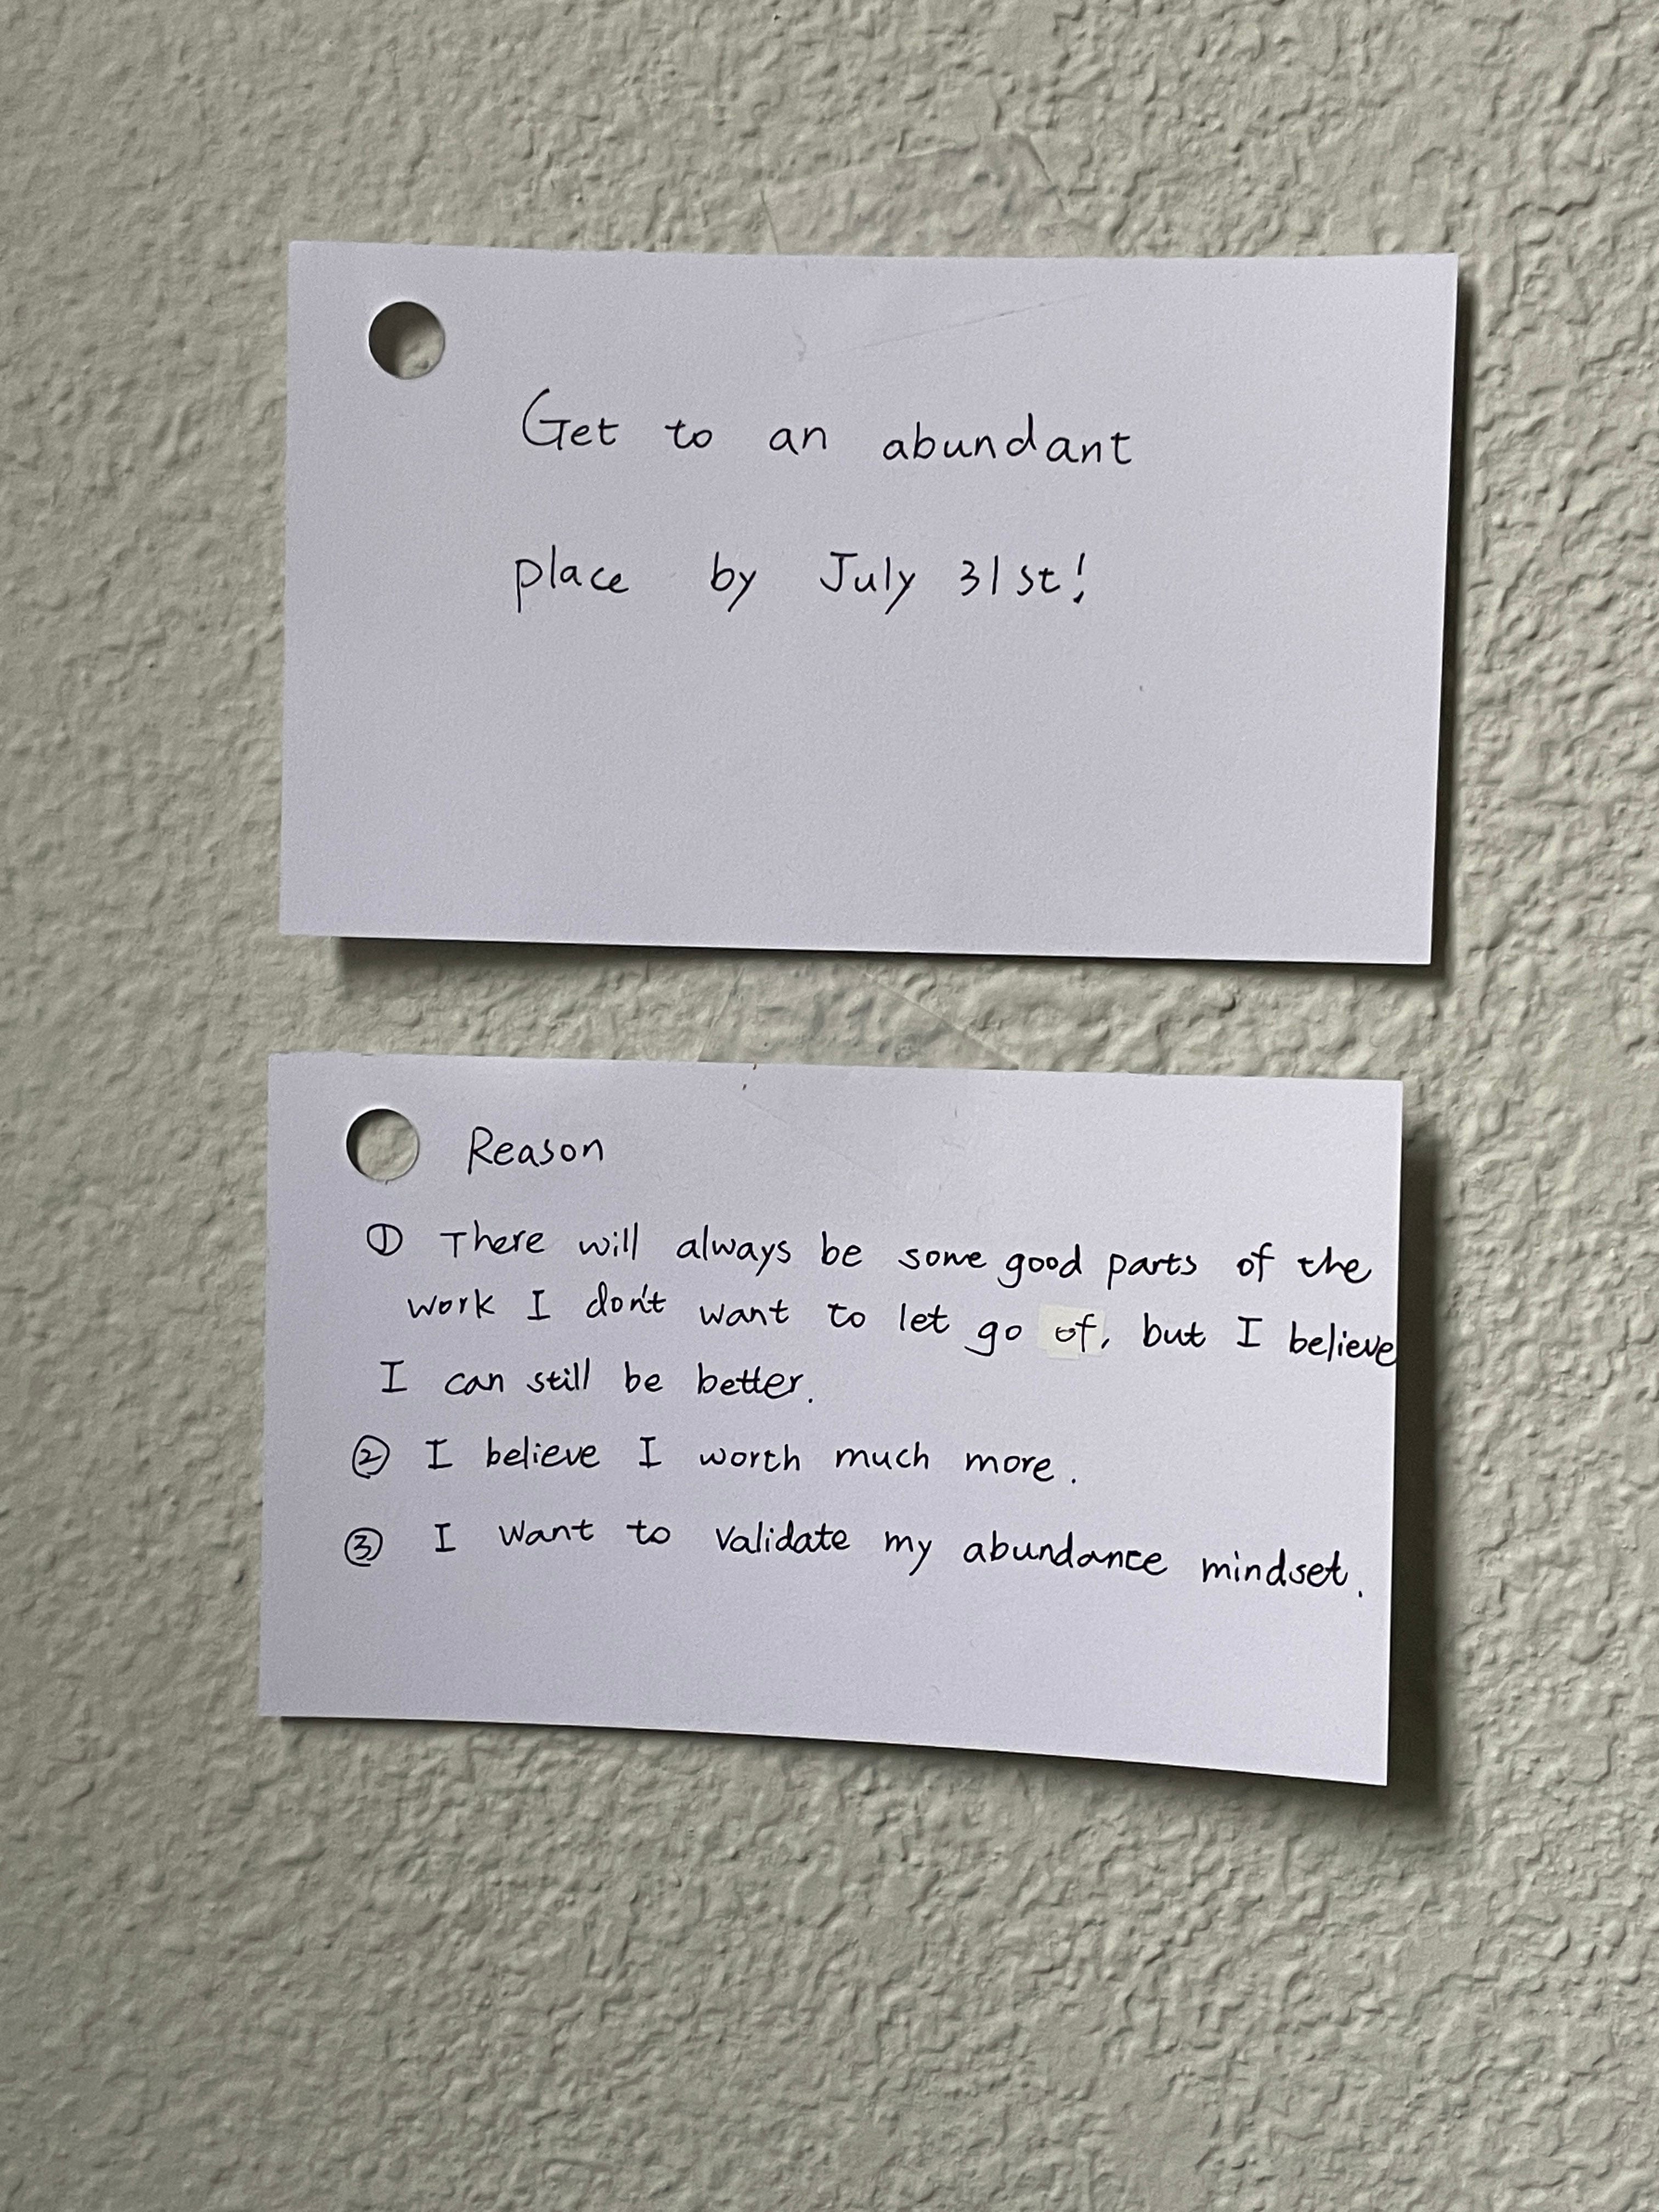 Get to an abundant
place by July 31st!
Reason
① There will always be some good parts of the
work I don't want to let go of, but I believe
I can still be better.
② I believe I worth much more.
③ I want to validate my abundance mindset.